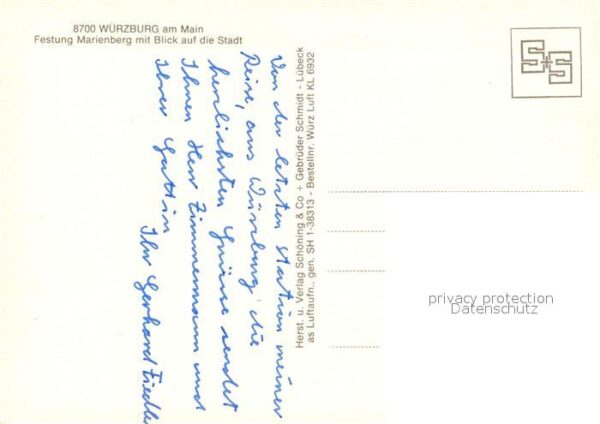 8700 WÜRZBURG am Main
Festung Marienberg mit Blick auf die Stadt
Von der letzten Station meiner
Reise, aus Würzburg die
herzlichsten Grüsse sendet
Ihnen Herr Zimmermann und
Ihrer Gattin
Ihr Gerhard
Herst. u. Verlag Schöning & Co + Gebrüder Schmidt - Lübeck
as Luftaufn., gen. SH 1-36313 - Bestellnr. Würz Luft KL 6932
S+S
privacy protection
Datenschutz